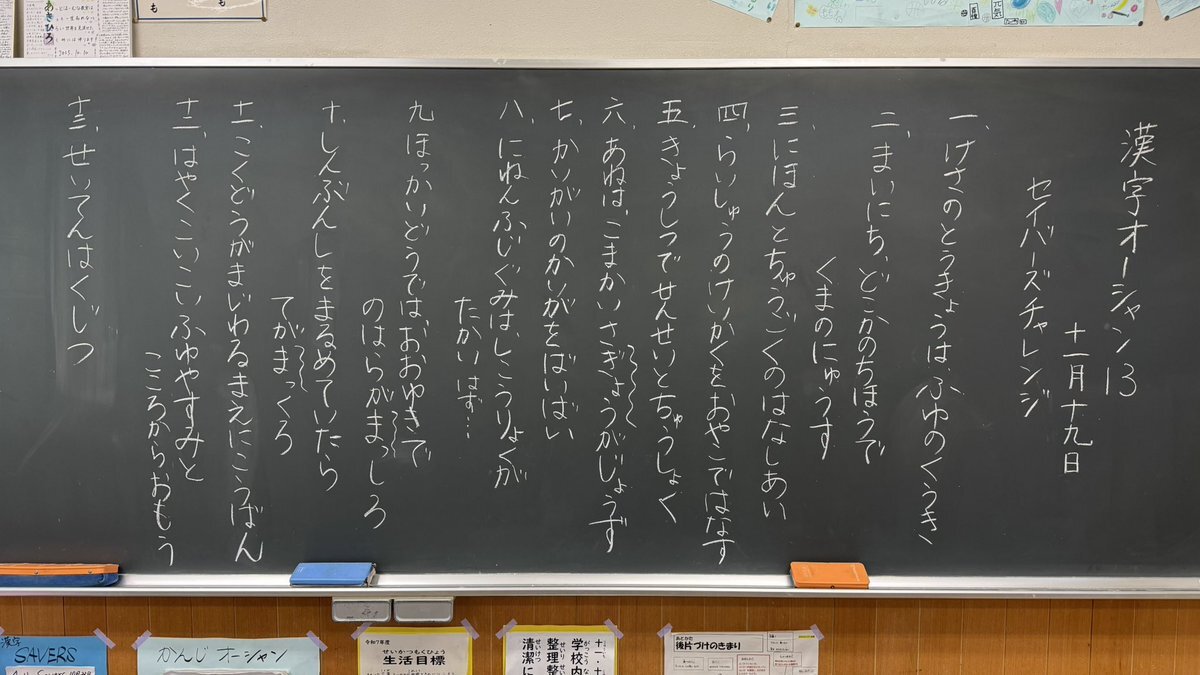 漢字オーシャン13
十一月十九日
セイバーズチャレンジ
一、けさのとうきょうは、ふゆのくうき
二、まいにち、どこかのちほうで
くまのにゅうす
三、にほんとちゅうごくのはなしあい
四、らいしゅうのけいかくをおやこではなす
五、きょうしつでせんせいとちゅうしょく
六、あねは、こまかいさぎょうがじょうず
七、かいがいのかいがをばいばい
八、にねんふじぐみは、しこうりょくが
たかいはず…
九、ほっかいどうではおおゆきで
のはらがまっしろ
十、しんぶんしをまるめていたら
てがまっくろ
十一、こくどうがまじわるまえにこうばん
十二、はやくこいこいふゆやすみと
こころからおもう
十三、せいてんはくじつ
あきひろ
2025.10.10
元気
漢字
SAVERS
かんじ オーシャン
令和7年度
せいかつもくひょう
生活目標
十一・十
学校内
整理整
清潔に
あとかた
後片づけのきまり